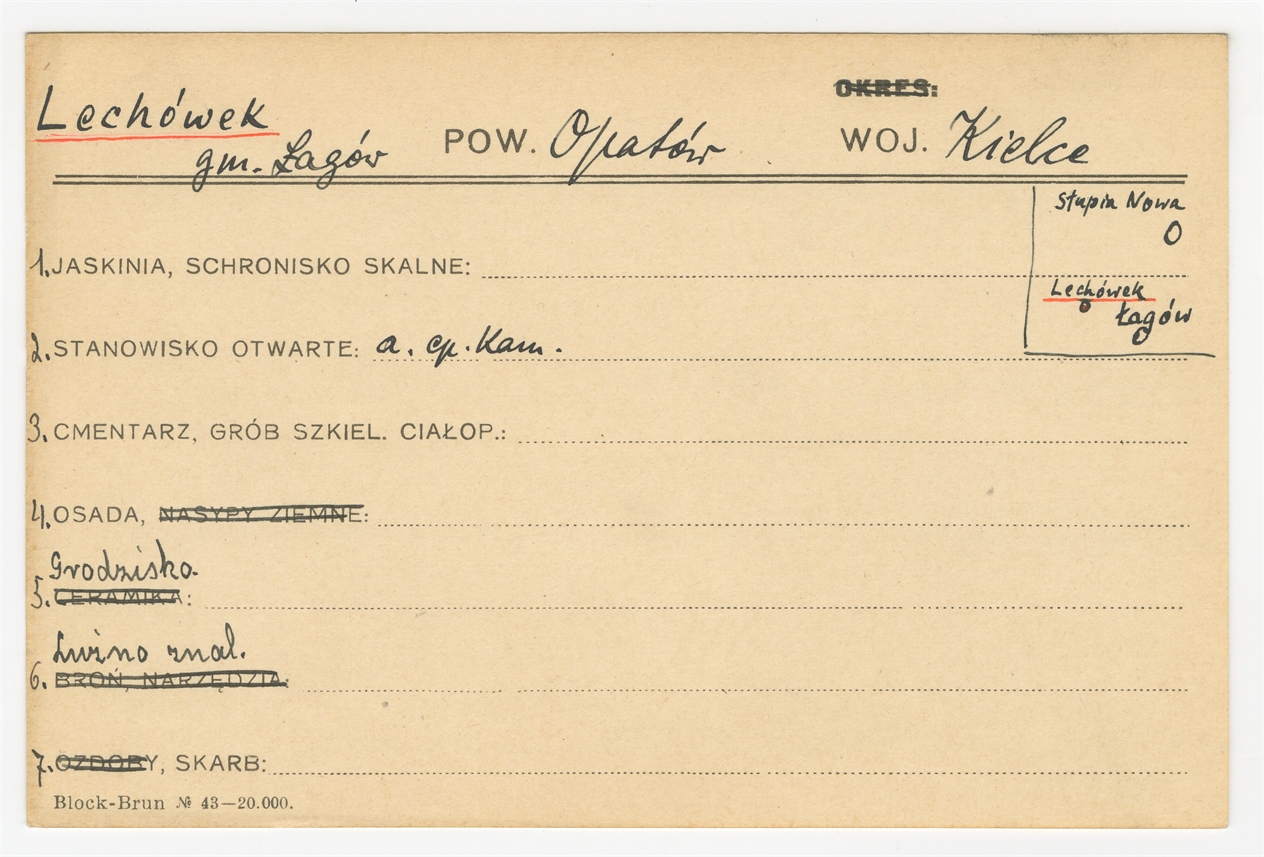 OKRES:
Lechówek
gm. Łagów POW. Opatów WOJ. Kielce
Słupia Nowa
1. JASKINIA, SCHRONISKO SKALNE:
Lechówek
Łagów
2. STANOWISKO OTWARTE: a. ep. Kam.
3. CMENTARZ, GRÓB SZKIEL. CIAŁOP.:
4. OSADA, NASYPY ZIEMNE:
Grodzisko.
5. CERAMIKA:
Luźno znal.
6. BROŃ, NARZĘDZIA:
7. OZDOBY, SKARB:
Block-Brun № 43—20.000.